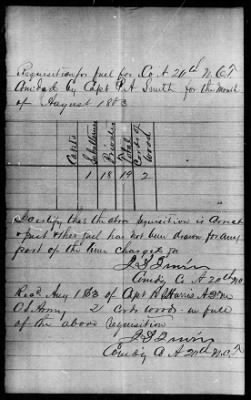 Requisition for fuel for Co A 20th N.C.T.
Comded by Capt P.A. Smith for the month
of August 1863
Capts
Total
Cords of
Wood
1 18 19 2
I certify that the above requisition is correct
& just & that fuel has not been drawn for any
part of the time charged
J F Irvin
Comdg Co A 20th
Recd Aug 1 63 of Capt Harris
2 Cords wood in full
of the above requisition
J F Irvin
Comdg Co A 20th